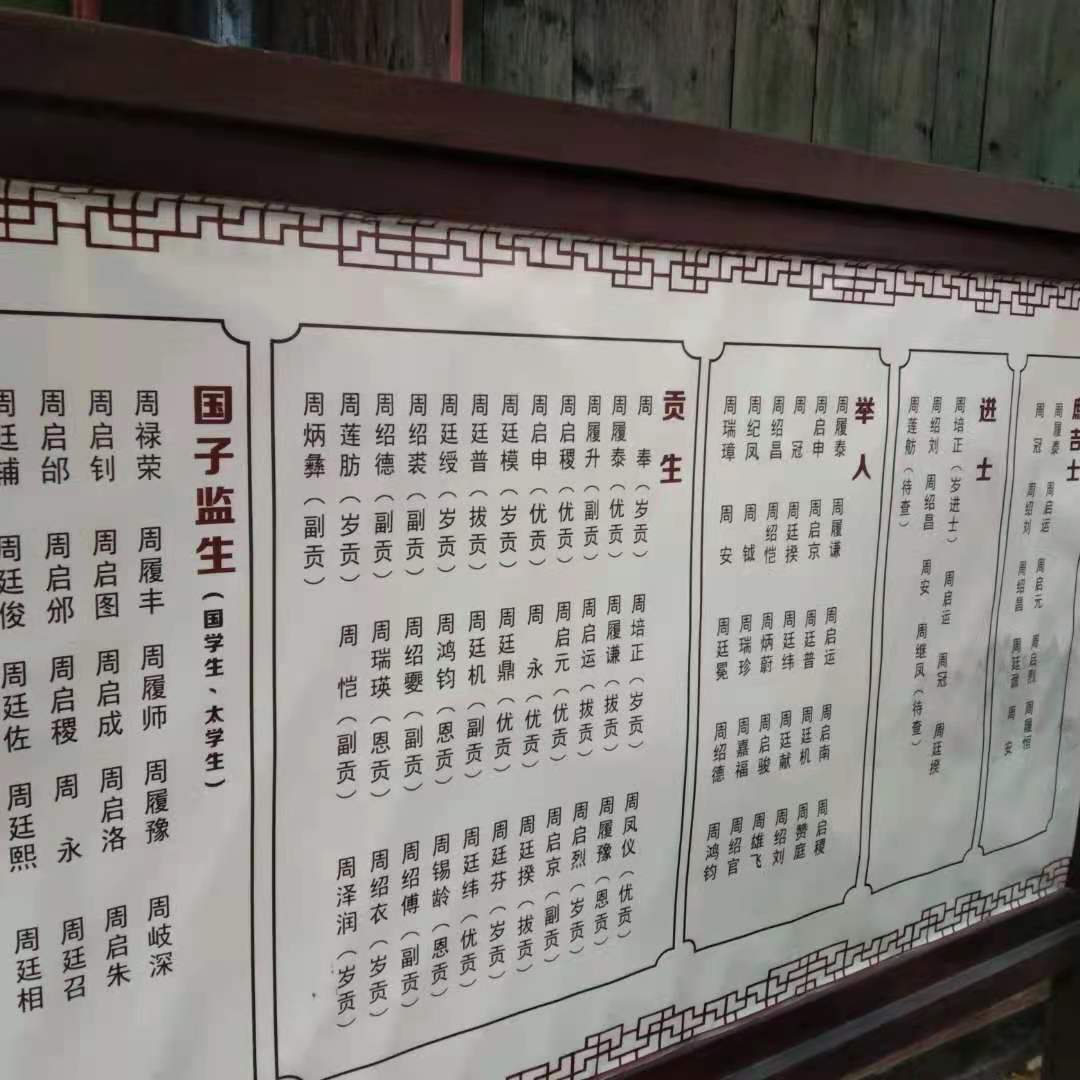 庶吉士
周履泰 周启运 周启元 周启烈 周履恒
周冠 周绍刘 周绍昌 周安
进士
周培正（岁进士） 周启运 周冠 周廷揆
周绍刘 周绍昌 周安 周继凤（待查）
周莲舫（待查）
举人
周履泰 周履谦 周启运 周启南 周启稷
周启申 周启京 周廷普 周廷机 周赞庭
周冠 周廷揆 周廷纬 周廷献 周绍刘
周绍昌 周绍恺 周炳蔚 周启骏 周雄飞
周纪凤 周钺 周瑞珍 周嘉福 周绍官
周瑞璋 周安 周廷冕 周绍德 周鸿钧
贡生
周奉（岁贡） 周培正（岁贡） 周凤仪（优贡）
周履泰（优贡） 周履谦（拔贡） 周履豫（恩贡）
周履升（副贡） 周启运（拔贡） 周启烈（岁贡）
周启稷（优贡） 周启元（优贡） 周启京（副贡）
周启申（优贡） 周永（优贡） 周廷揆（拔贡）
周廷模（岁贡） 周廷鼎（优贡） 周廷芬（岁贡）
周廷普（拔贡） 周廷机（副贡） 周廷纬（优贡）
周廷绶（岁贡） 周鸿钧（恩贡） 周锡龄（恩贡）
周绍裘（副贡） 周绍夔（副贡） 周绍傅（副贡）
周绍德（副贡） 周瑞瑛（恩贡） 周绍衣（岁贡）
周莲肪（岁贡） 周恺（副贡） 周泽润（岁贡）
周炳彝（副贡）
国子监生（国学生、太学生）
周禄荣 周履丰 周履师 周履豫 周岐深
周启钊 周启图 周启成 周启洛 周启朱
周启邰 周启邠 周启稷 周永 周廷召
周廷辅 周廷俊 周廷佐 周廷熙 周廷相